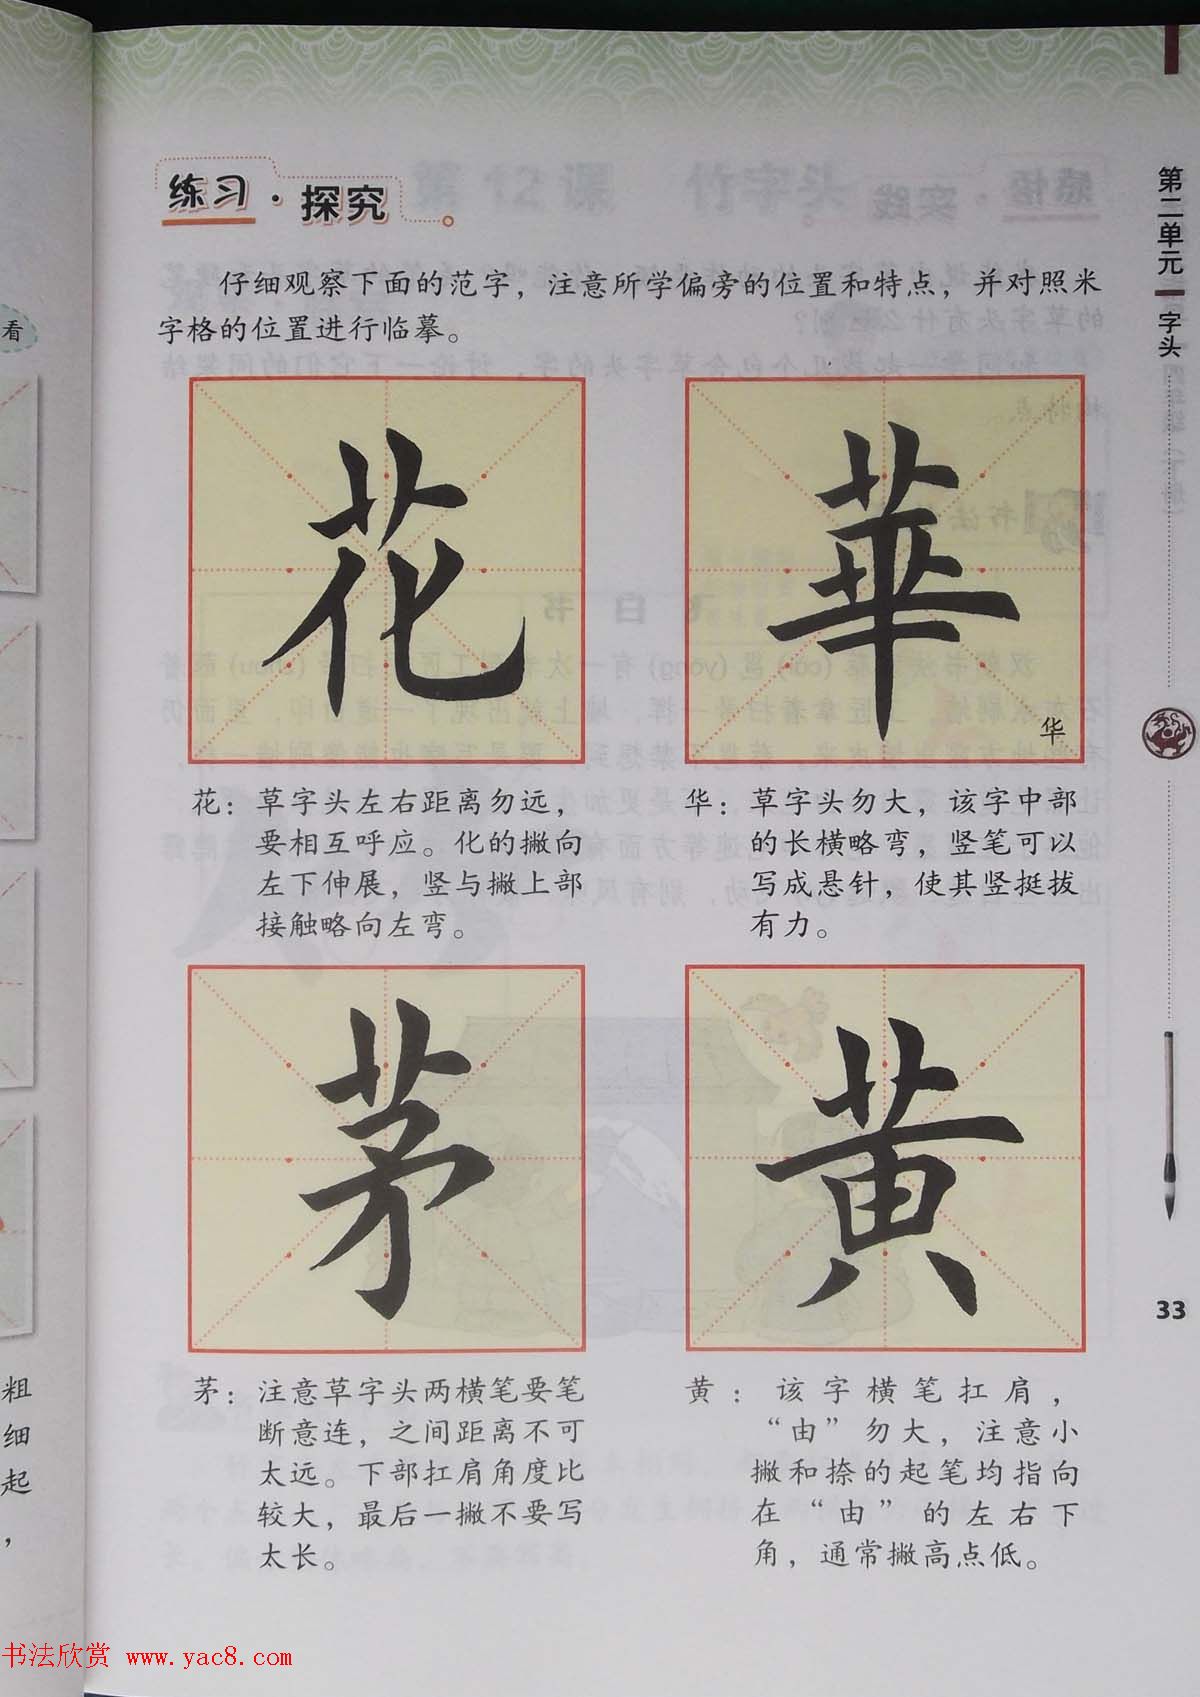 练习·探究
仔细观察下面的范字，注意所学偏旁的位置和特点，并对照米
字格的位置进行临摹。
花
華
华
花：草字头左右距离勿远，
要相互呼应。化的撇向
左下伸展，竖与撇上部
接触略向左弯。
华：草字头勿大，该字中部
的长横略弯，竖笔可以
写成悬针，使其竖挺拔
有力。
茅
黄
茅：注意草字头两横笔要笔
断意连，之间距离不可
太远。下部扛肩角度比
较大，最后一撇不要写
太长。
黄：该字横笔扛肩，
“由”勿大，注意小
撇和捺的起笔均指向
在“由”的左右下
角，通常撇高点低。
第二单元 字头
33
看
粗
细
起
，
书法欣赏 www.yac8.com